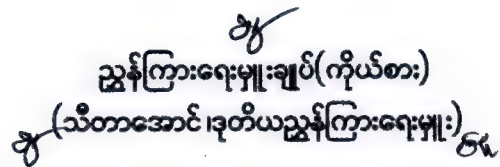 ညွှန်ကြားရေးမှူးချုပ်(ကိုယ်စား)
(သီတာအောင်၊ဒုတိယညွှန်ကြားရေးမှူး)